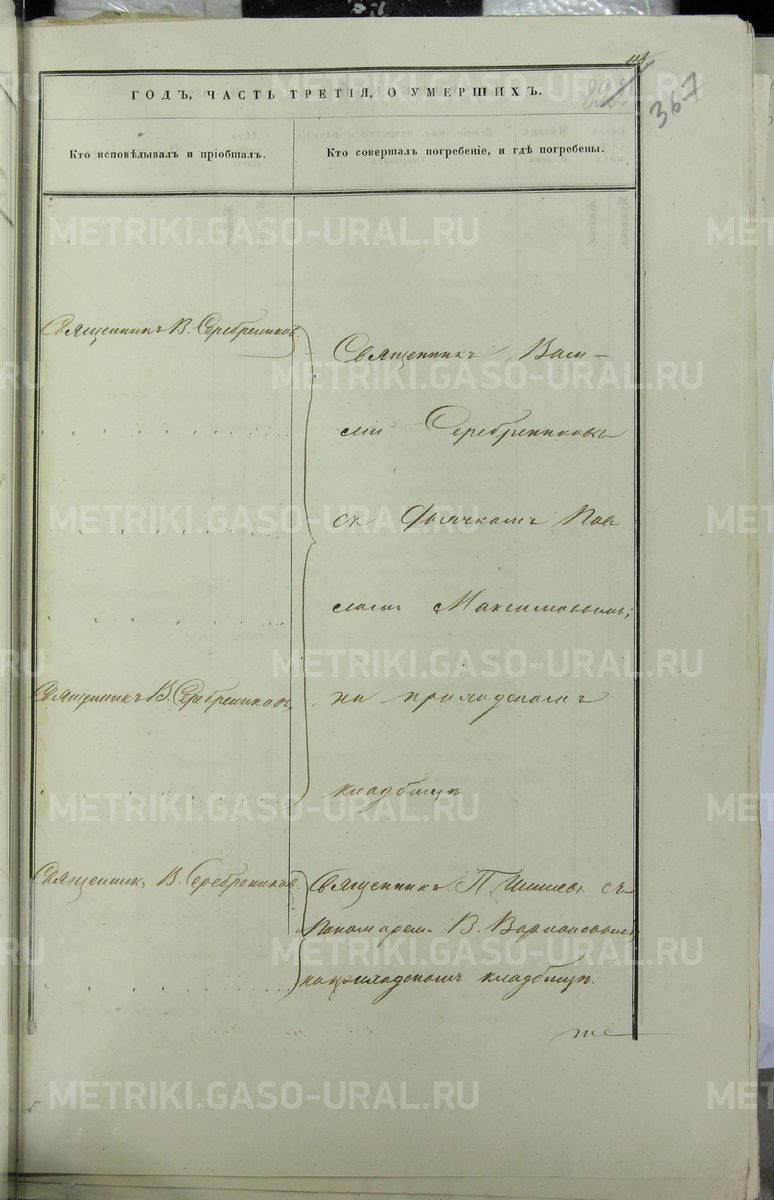 892
367
ГОДЪ, ЧАСТЬ ТРЕТІЯ, О УМЕРШИХЪ.
Кто исповѣдывалъ и пріобщалъ.
Кто совершалъ погребеніе, и гдѣ погребены.
Священникъ В. Серебрениковъ.
Священникъ Васи-
лій Серебрениковъ
съ Дьячкомъ Пав
ломъ Максимовымъ;
Священникъ В. Серебрениковъ,
на приходскомъ
кладбищѣ.
Священникъ В. Серебрениковъ.
Священникъ П. съ
Пономаремъ В. Варлаковымъ,
на приходскомъ кладбищѣ.
METRIKI.GASO-URAL.RU